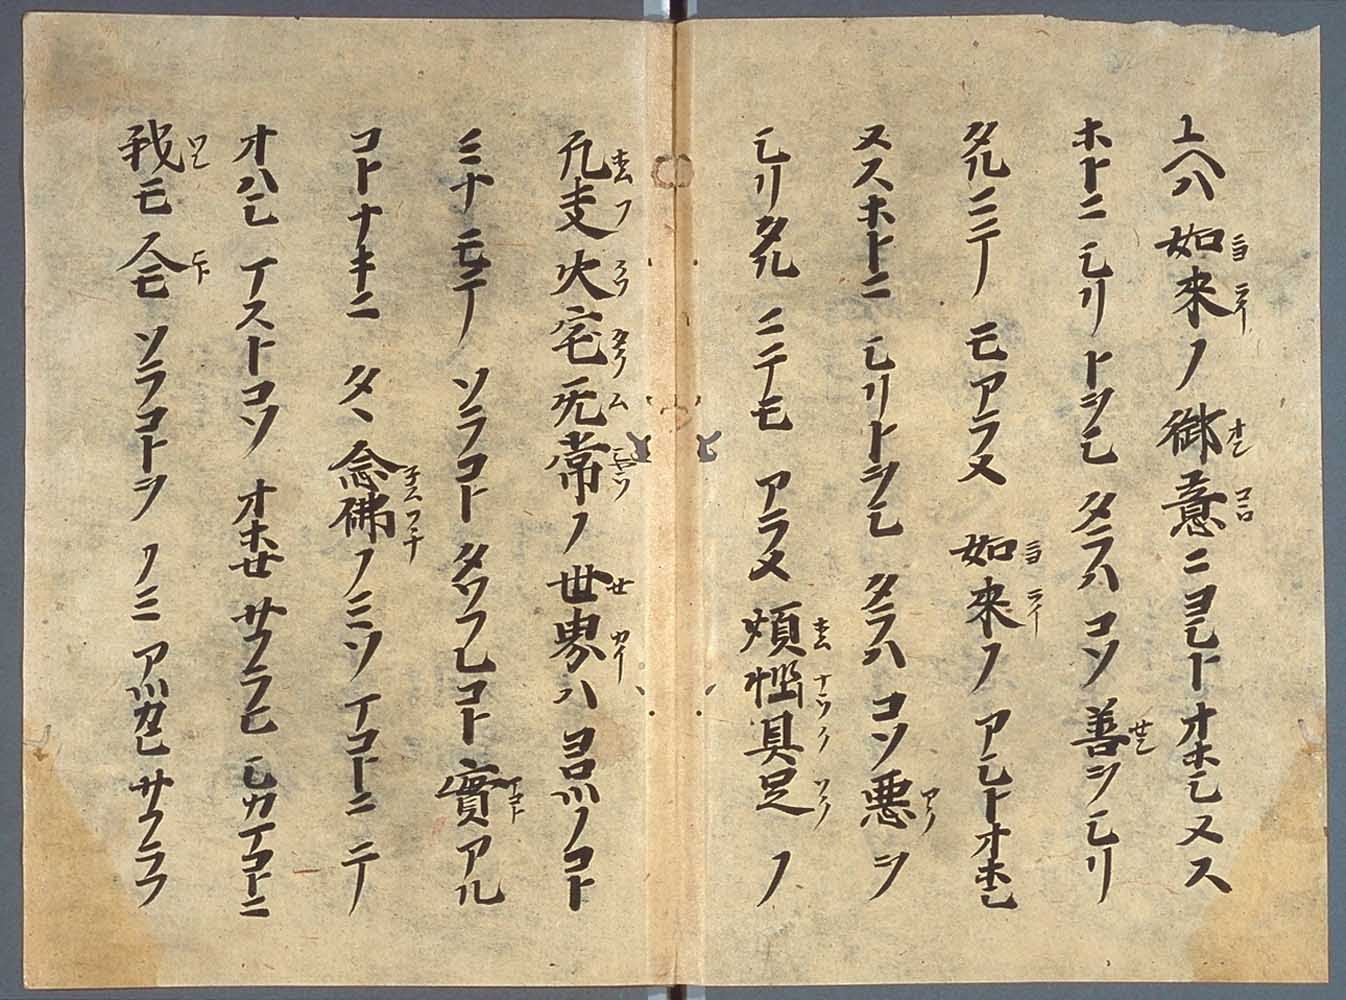 ユヘハ 如來ノ御意ニヨシトオホシメス
ホトニシリトヲシタラハコソ善ヲシリ
タルニテモアラメ如來ノアシトオホシ
メスホトニシリトヲシタラハコソ悪ヲ
シリタルニテモアラメ煩惱具足ノ
凡夫火宅无常ノ世界ハヨロツノコト
ミナモテソラコトタワフレコト實アル
コトナキニタヽ念佛ノミソマコトニテ
オハシマストコソオホセサフラヒシカマコトニ
我モ人モソラコトヲノミアツカヒサフラフ